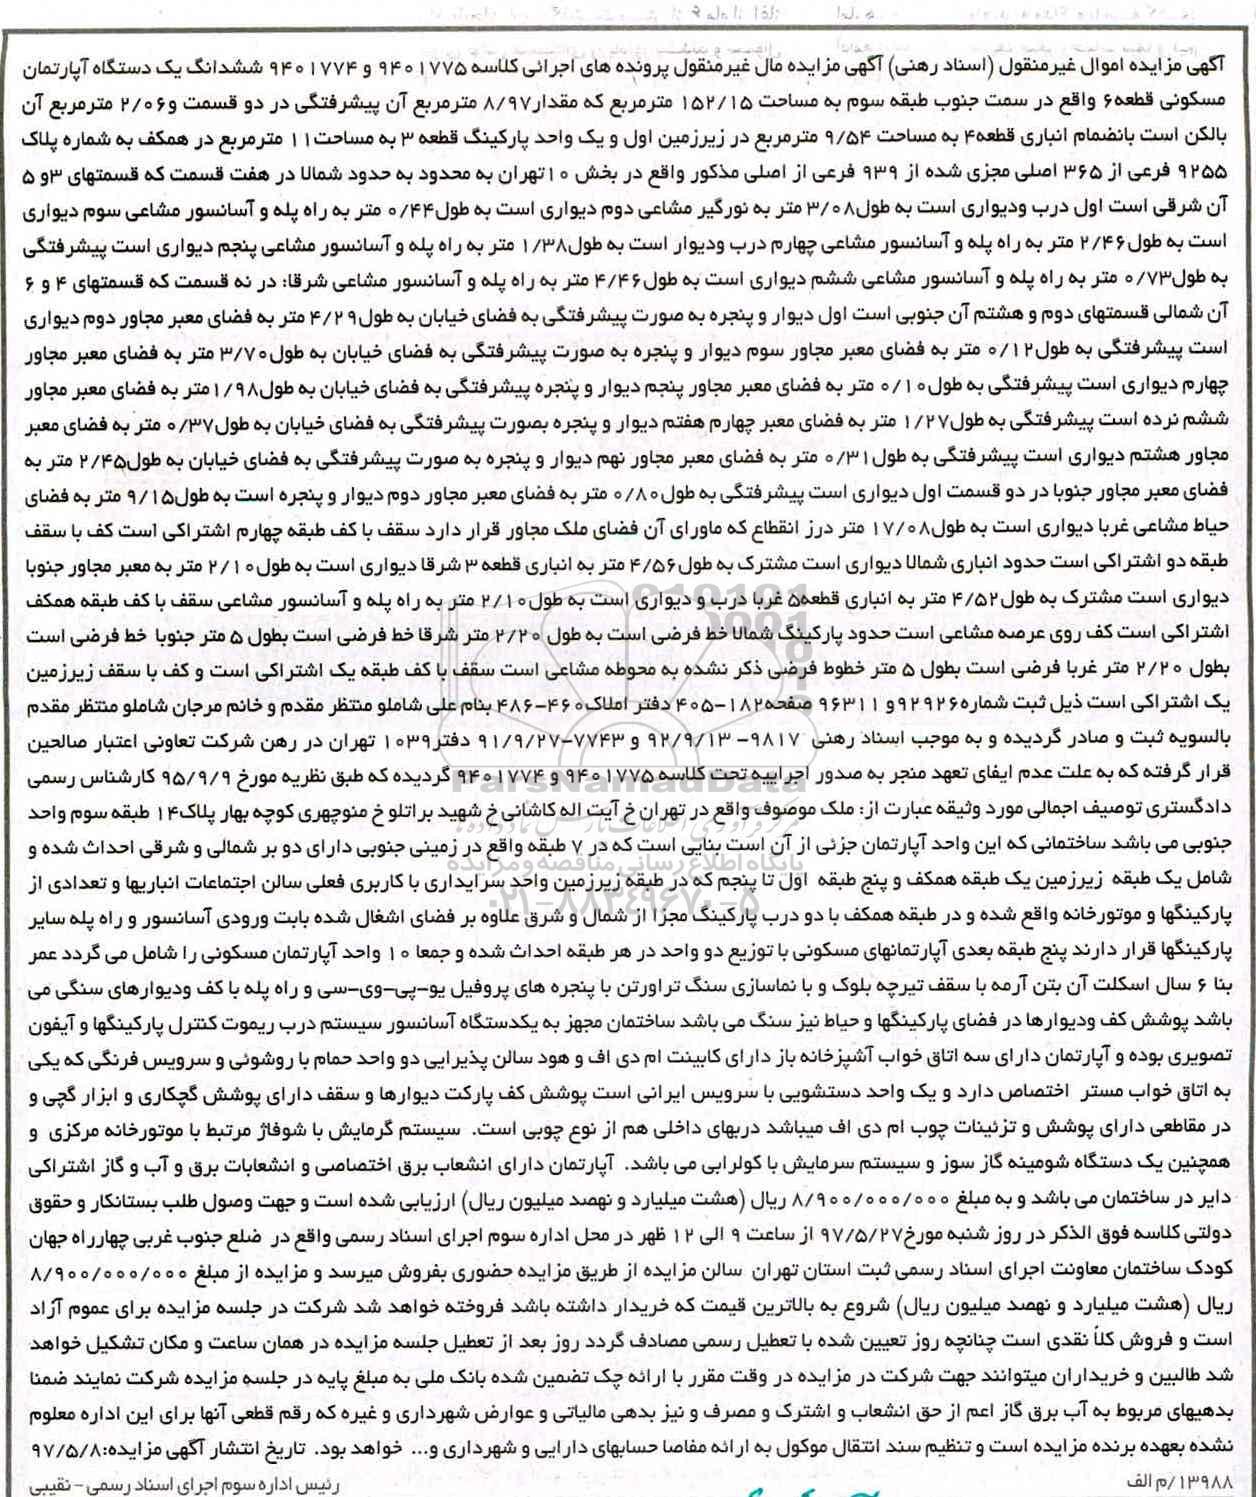 آگهی مزایده اموال غیرمنقول (اسناد رهنی) آگهی مزایده مال غیرمنقول پرونده های اجرائی کلاسه ۹۴۰۱۷۷۵ و ۹۴۰۱۷۷۴ ششدانگ یک دستگاه آپارتمان
مسکونی قطعه۶ واقع در سمت جنوب طبقه سوم به مساحت ۱۵۲/۱۵ مترمربع که مقدار۸/۹۷ مترمربع آن پیشرفتگی در دو قسمت و۲/۰۶ مترمربع آن
بالکن است بانضمام انباری قطعه۴ به مساحت ۹/۵۴ مترمربع در زیرزمین اول و یک واحد پارکینگ قطعه ۳ به مساحت۱۱ مترمربع در همکف به شماره پلاک
۹۲۵۵ فرعی از ۳۶۵ اصلی مجزی شده از ۹۳۹ فرعی از اصلی مذکور واقع در بخش ۱۰تهران به محدود به حدود شمالا در هفت قسمت که قسمتهای ۳و ۵
آن شرقی است اول درب ودیواری است به طول۳/۰۸ متر به نورگیر مشاعی دوم دیواری است به طول۰/۴۴ متر به راه پله و آسانسور مشاعی سوم دیواری
است به طول۲/۴۶ متر به راه پله و آسانسور مشاعی چهارم درب ودیوار است به طول۱/۳۸ متر به راه پله و آسانسور مشاعی پنجم دیواری است پیشرفتگی
به طول۰/۷۳ متر به راه پله و آسانسور مشاعی ششم دیواری است به طول۴/۴۶ متر به راه پله و آسانسور مشاعی شرقا: در نه قسمت که قسمتهای ۴ و ۶
آن شمالی قسمتهای دوم و هشتم آن جنوبی است اول دیوار و پنجره به صورت پیشرفتگی به فضای خیابان به طول۴/۲۹ متر به فضای معبر مجاور دوم دیواری
است پیشرفتگی به طول۰/۱۲ متر به فضای معبر مجاور سوم دیوار و پنجره به صورت پیشرفتگی به فضای خیابان به طول۳/۷۰ متر به فضای معبر مجاور
چهارم دیواری است پیشرفتگی به طول۰/۱۰ متر به فضای معبر مجاور پنجم دیوار و پنجره پیشرفتگی به فضای خیابان به طول۱/۹۸متر به فضای معبر مجاور
ششم نرده است پیشرفتگی به طول۱/۲۷ متر به فضای معبر چهارم هفتم دیوار و پنجره بصورت پیشرفتگی به فضای خیابان به طول۰/۳۷ متر به فضای معبر
مجاور هشتم دیواری است پیشرفتگی به طول۰/۳۱ متر به فضای معبر مجاور نهم دیوار و پنجره به صورت پیشرفتگی به فضای خیابان به طول۲/۴۵ متر به
فضای معبر مجاور جنوبا در دو قسمت اول دیواری است پیشرفتگی به طول۰/۸۰ متر به فضای معبر مجاور دوم دیوار و پنجره است به طول۹/۱۵ متر به فضای
حیاط مشاعی غربا دیواری است به طول۱۷/۰۸ متر درز انقطاع که ماورای آن فضای ملک مجاور قرار دارد سقف با کف طبقه چهارم اشتراکی است کف با سقف
طبقه دو اشتراکی است حدود انباری شمالا دیواری است مشترک به طول۴/۵۶ متر به انباری قطعه ۳ شرقا دیواری است به طول۲/۱۰ متر به معبر مجاور جنوبا
دیواری است مشترک به طول۴/۵۲ متر به انباری قطعه۵ غربا درب و دیواری است به طول۲/۱۰ متر به راه پله و آسانسور مشاعی سقف با کف طبقه همکف
اشتراکی است کف روی عرصه مشاعی است حدود پارکینگ شمالا خط فرضی است به طول ۲/۲۰ متر شرقا خط فرضی است بطول ۵ متر جنوبا خط فرضی است
بطول ۲/۲۰ متر غربا فرضی است بطول ۵ متر خطوط فرضی ذکر نشده به محوطه مشاعی است سقف با کف طبقه یک اشتراکی است و کف با سقف زیرزمین
یک اشتراکی است ذیل ثبت شماره۹۲۹۲۶و ۹۶۳۱۱ صفحه۱۸۲-۴۰۵ دفتر املاک۴۶۰-۴۸۶ بنام علی شاملو منتظر مقدم و خانم مرجان شاملو منتظر مقدم
بالسویه ثبت و صادر گردیده و به موجب اسناد رهنی ۹۸۱۷- ۹۲/۹/۱۳ و ۷۷۴۳-۹۱/۹/۲۷ دفتر۱۰۳۹ تهران در رهن شرکت تعاونی اعتبار صالحین
قرار گرفته که به علت عدم ایفای تعهد منجر به صدور اجراییه تحت کلاسه ۹۴۰۱۷۷۵ و ۹۴۰۱۷۷۴ گردیده که طبق نظریه مورخ ۹۵/۹/۹ کارشناس رسمی
دادگستری توصیف اجمالی مورد وثیقه عبارت از: ملک موصوف واقع در تهران خ آیت اله کاشانی خ شهید براتلو خ منوچهری کوچه بهار پلاک۱۴ طبقه سوم واحد
جنوبی می باشد ساختمانی که این واحد آپارتمان جزئی از آن است بنایی است که در ۷ طبقه واقع در زمینی جنوبی دارای دو بر شمالی و شرقی احداث شده و
شامل یک طبقه زیرزمین یک طبقه همکف و پنج طبقه اول تا پنجم که در طبقه زیرزمین واحد سرایداری با کاربری فعلی سالن اجتماعات انباریها و تعدادی از
پارکینگها و موتورخانه واقع شده و در طبقه همکف با دو درب پارکینگ مجزا از شمال و شرق علاوه بر فضای اشغال شده بابت ورودی آسانسور و راه پله سایر
پارکینگها قرار دارند پنج طبقه بعدی آپارتمانهای مسکونی با توزیع دو واحد در هر طبقه احداث شده و جمعا ۱۰ واحد آپارتمان مسکونی را شامل می گردد عمر
بنا ۶ سال اسکلت آن بتن آرمه با سقف تیرچه بلوک و با نماسازی سنگ تراورتن با پنجره های پروفیل یو-پی-وی-سی و راه پله با کف ودیوارهای سنگی می
باشد پوشش کف ودیوارها در فضای پارکینگها و حیاط نیز سنگ می باشد ساختمان مجهز به یکدستگاه آسانسور سیستم درب ریموت کنترل پارکینگها و آیفون
تصویری بوده و آپارتمان دارای سه اتاق خواب آشپزخانه باز دارای کابینت ام دی اف و هود سالن پذیرایی دو واحد حمام با روشوئی و سرویس فرنگی که یکی
به اتاق خواب مستر اختصاص دارد و یک واحد دستشویی با سرویس ایرانی است پوشش کف پارکت دیوارها و سقف دارای پوشش گچکاری و ابزار گچی و
در مقاطعی دارای پوشش و تزئینات چوب ام دی اف میباشد دربهای داخلی هم از نوع چوبی است. سیستم گرمایش با شوفاژ مرتبط با موتورخانه مرکزی و
همچنین یک دستگاه شومینه گاز سوز و سیستم سرمایش با کولرابی می باشد. آپارتمان دارای انشعاب برق اختصاصی و انشعابات برق و آب و گاز اشتراکی
دایر در ساختمان می باشد و به مبلغ ۸/۹۰۰/۰۰۰/۰۰۰ ریال (هشت میلیارد و نهصد میلیون ریال) ارزیابی شده است و جهت وصول طلب بستانکار و حقوق
دولتی کلاسه فوق الذکر در روز شنبه مورخ۹۷/۵/۲۷ از ساعت ۹ الی ۱۲ ظهر در محل اداره سوم اجرای اسناد رسمی واقع در ضلع جنوب غربی چهارراه جهان
کودک ساختمان معاونت اجرای اسناد رسمی ثبت استان تهران سالن مزایده از طریق مزایده حضوری بفروش میرسد و مزایده از مبلغ ۸/۹۰۰/۰۰۰/۰۰۰
ریال (هشت میلیارد و نهصد میلیون ریال) شروع به بالاترین قیمت که خریدار داشته باشد فروخته خواهد شد شرکت در جلسه مزایده برای عموم آزاد
است و فروش کلاً نقدی است چنانچه روز تعیین شده با تعطیل رسمی مصادف گردد روز بعد از تعطیل جلسه مزایده در همان ساعت و مکان تشکیل خواهد
شد طالبین و خریداران میتوانند جهت شرکت در مزایده در وقت مقرر با ارائه چک تضمین شده بانک ملی به مبلغ پایه در جلسه مزایده شرکت نمایند ضمنا
بدهیهای مربوط به آب برق گاز اعم از حق انشعاب و اشترک و مصرف و نیز بدهی مالیاتی و عوارض شهرداری و غیره که رقم قطعی آنها برای این اداره معلوم
نشده بعهده برنده مزایده است و تنظیم سند انتقال موکول به ارائه مفاصا حسابهای دارایی و شهرداری و... خواهد بود. تاریخ انتشار آگهی مزایده:۹۷/۵/۸
۱۳۹۸۸/م الف
رئیس اداره سوم اجرای اسناد رسمی - نقیبی
ParsNamadData
پایگاه اطلاع رسانی مناقصه و مزایده
۰۲۱-۸۸۳۴۹۶۷۰-۵